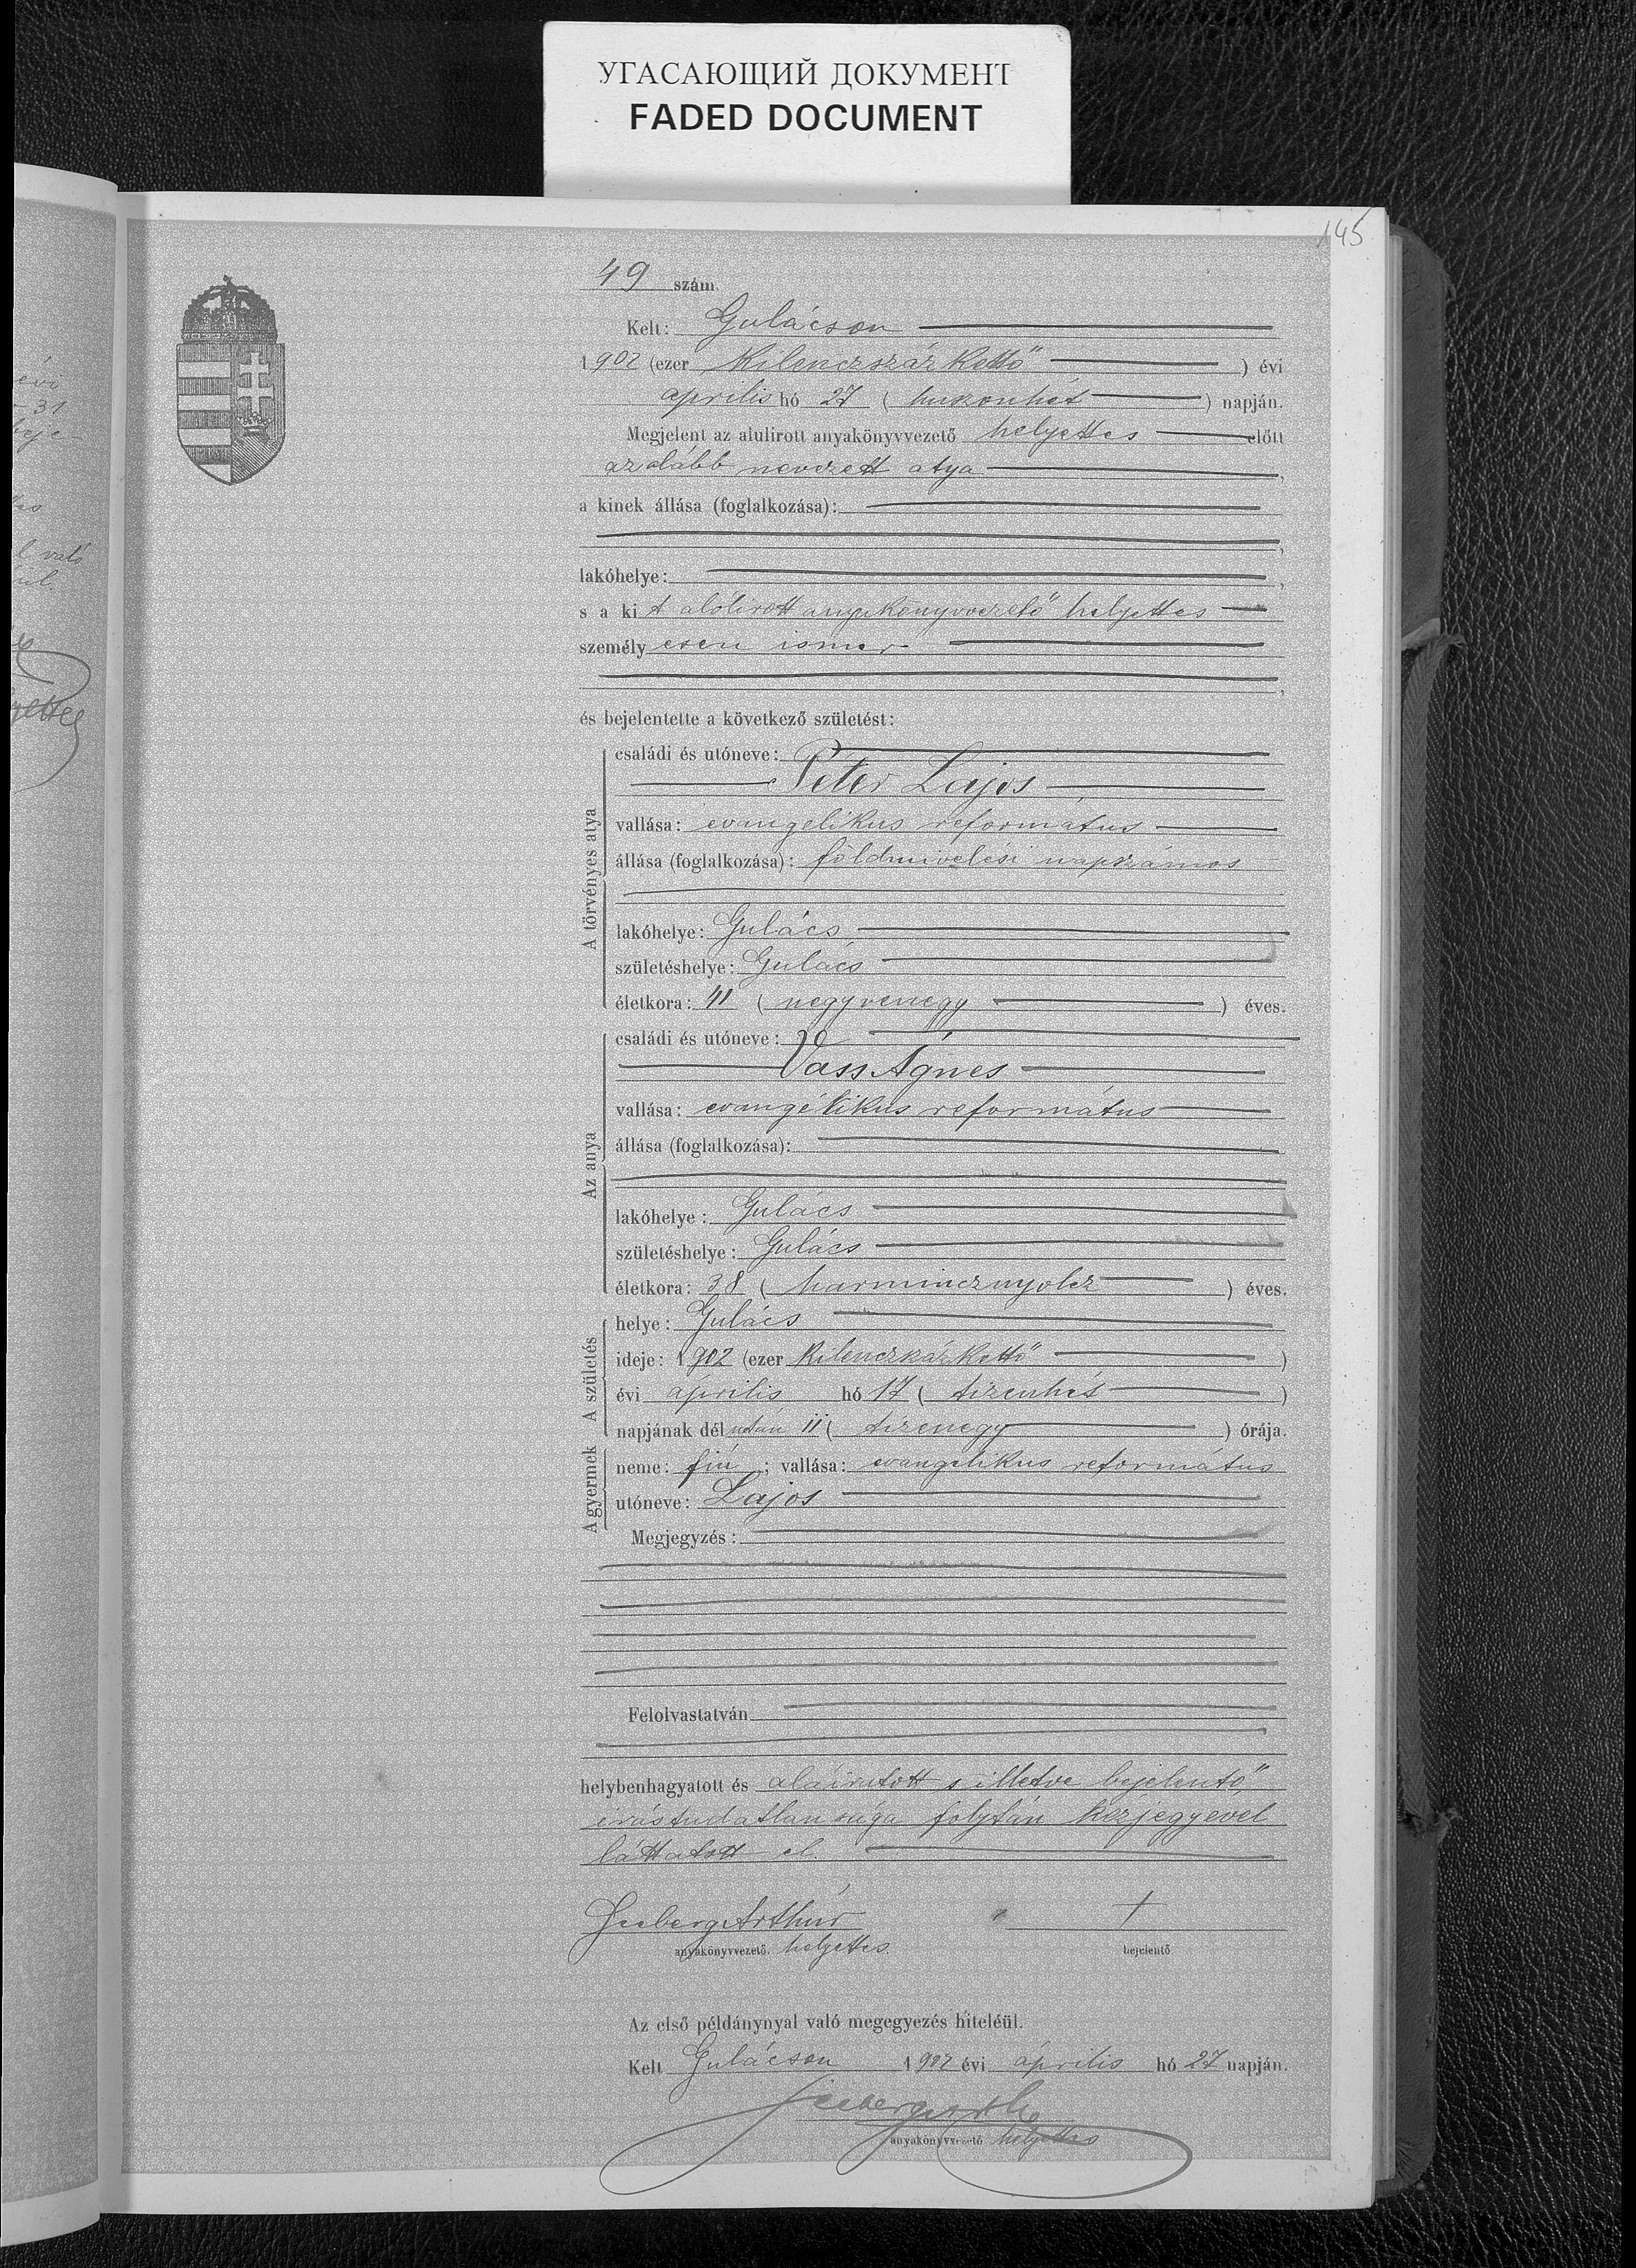 УГАСАЮЩИЙ ДОКУМЕНТ
FADED DOCUMENT
145
49 szám.
Kelt: Gulácson
1902 (ezer kilenczszáz kettő) évi
április hó 27 (huszonhét) napján.
Megjelent az alulirott anyakönyvvezető helyettes előtt
az alább nevezett atya,
a kinek állása (foglalkozása):
lakóhelye:
s a kit alólirott anyakönyvvezető helyettes
személyesen ismer
és bejelentette a következő születést:
A törvényes atya
családi és utóneve:
Péter Lajos
vallása: evangelikus református
állása (foglalkozása): földmivelési napszámos
lakóhelye: Gulács
születéshelye: Gulács
életkora: 41 (negyvenegy) éves.
Az anya
családi és utóneve:
Vass Ágnes
vallása: evangélikus református
állása (foglalkozása):
lakóhelye: Gulács
születéshelye: Gulács
életkora: 38 (harmincznyolcz) éves.
A születés
helye: Gulács
ideje: 1902 (ezer kilenczszáz kettő)
évi április hó 17 (tizenhét)
napjának dél után 11 (tizenegy) órája.
A gyermek
neme: fiú; vallása: evangelikus református
utóneve: Lajos
Megjegyzés:
Felolvastatván
helybenhagyatott és aláiratott s illetve bejelentő
irástudatlansága folytán kézjegyével
láttatott el.
Arthúr +
anyakönyvvezető. helyettes. bejelentő
Az első példánynyal való megegyezés hiteléül.
Kelt Gulácson 1902 évi április hó 27 napján.
anyakönyvvezető helyettes